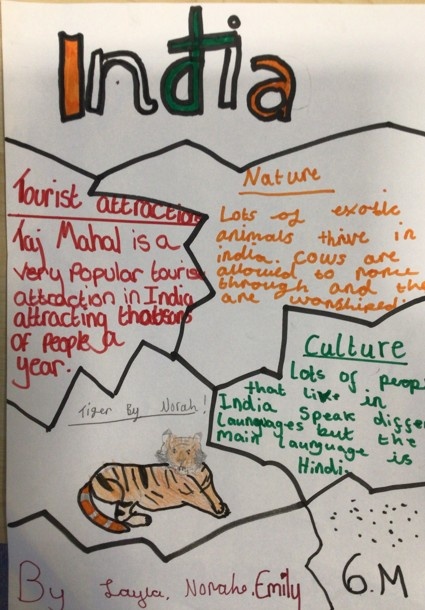 India
Tourist attraction
Taj Mahal is a
very Popular tourist
attraction in India
attracting
of people a
year.
Nature
Lots of exotic
animals thrive in
india. cows are
allowed to
through and
are worshiped.
Culture
Lots of
that live in
India Speak
Launguages but the
main Launguage is
Hindi.
Tiger By Norah!
By Layla, Norah.Emily
6.M